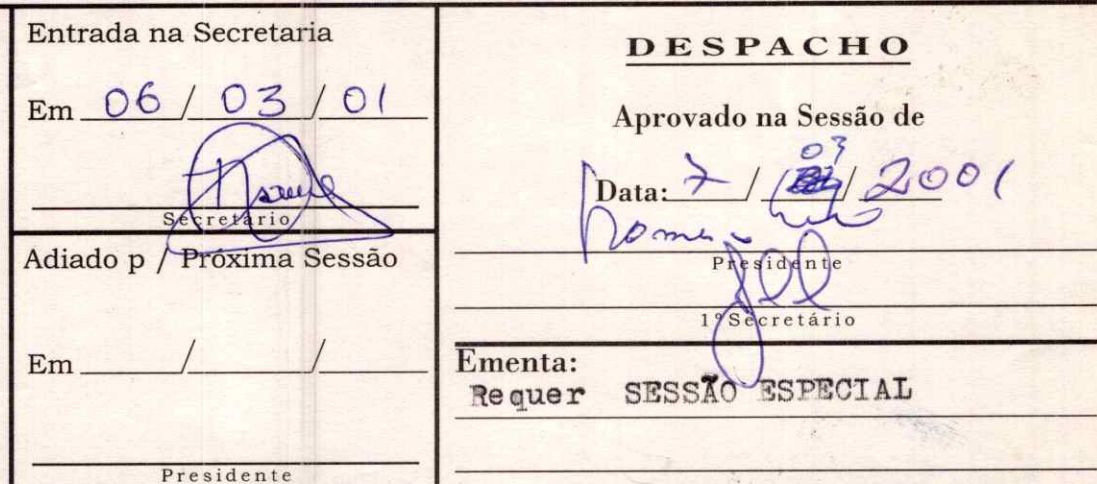 Entrada na Secretaria
Em 06 / 03 / 01
Secretário
Adiado p / Próxima Sessão
Em / /
Presidente
DESPACHO
Aprovado na Sessão de
Data: 7 / 03 / 2001
Presidente
1º Secretário
Ementa:
Requer SESSÃO ESPECIAL